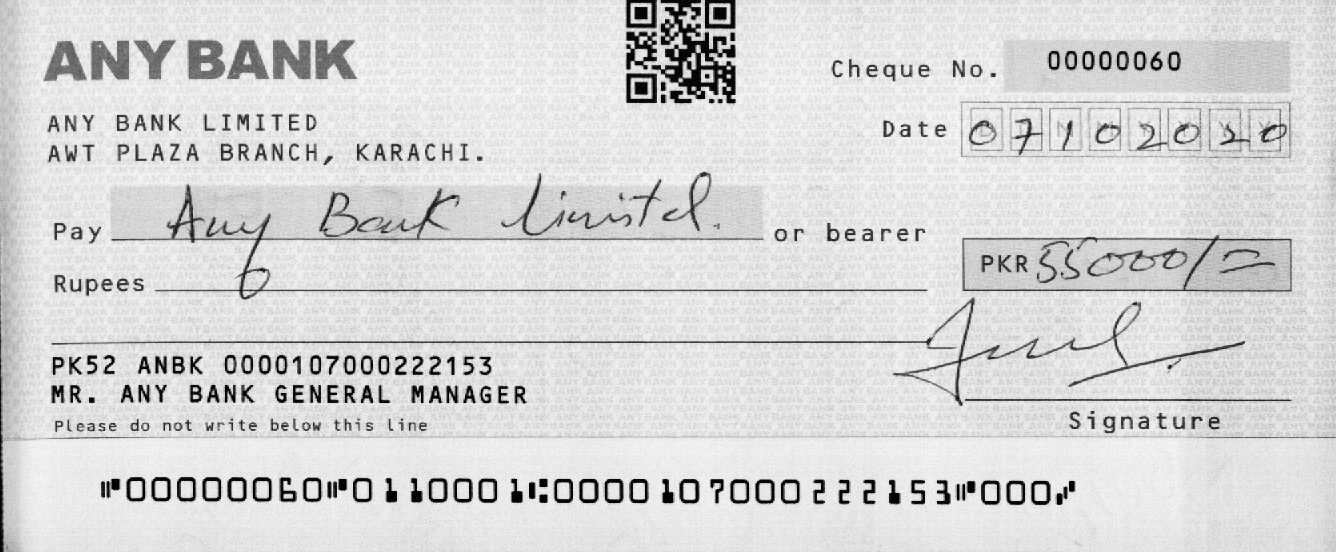 ANY BANK
Cheque No. 00000060
ANY BANK LIMITED
Date 07102020
AWT PLAZA BRANCH, KARACHI.
Pay Any Bank Limited. or bearer
Rupees
PKR 55000/=
PK52 ANBK 0000107000222153
MR. ANY BANK GENERAL MANAGER
Please do not write below this line
Signature
⑈00000060⑈0110001⑆0000107000222153⑈000⑇